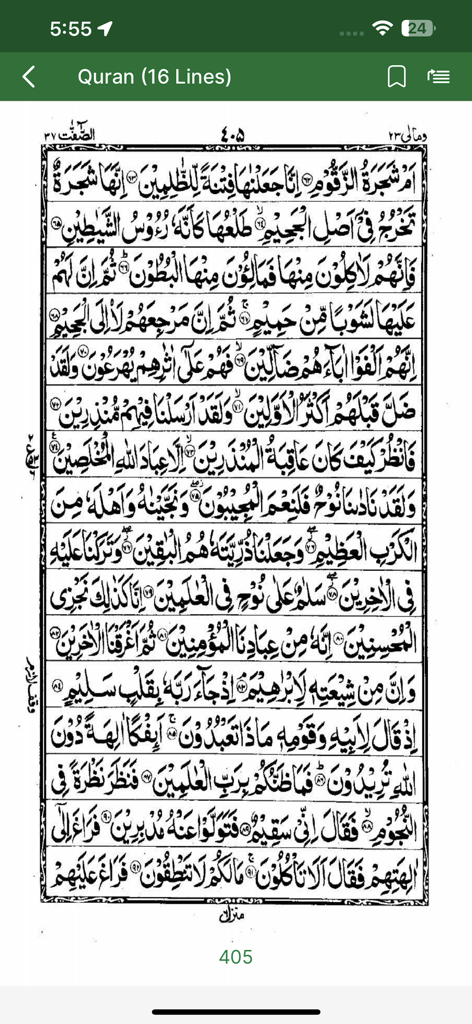 5:55
24
Quran (16 Lines)
الصّٰٓفّٰت ٣٧ ٤٠٥ ومالی ٢٣
اَمْ شَجَرَةُ الزَّقُّوْمِ ﴿٦٢﴾ اِنَّا جَعَلْنٰهَا فِتْنَةً لِّلظّٰلِمِيْنَ ﴿٦٣﴾ اِنَّهَا شَجَرَةٌ
تَخْرُجُ فِيْۤ اَصْلِ الْجَحِيْمِ ﴿٦٤﴾ طَلْعُهَا كَاَنَّهٗ رُءُوْسُ الشَّيٰطِيْنِ ﴿٦٥﴾
فَاِنَّهُمْ لَاٰكِلُوْنَ مِنْهَا فَمَالِـُٔوْنَ مِنْهَا الْبُطُوْنَ ﴿٦٦﴾ ثُمَّ اِنَّ لَهُمْ
عَلَيْهَا لَشَوْبًا مِّنْ حَمِيْمٍ ﴿٦٧﴾ ثُمَّ اِنَّ مَرْجِعَهُمْ لَا۠اِلَى الْجَحِيْمِ ﴿٦٨﴾
اِنَّهُمْ اَلْفَوْا اٰبَآءَهُمْ ضَآلِّيْنَ ﴿٦٩﴾ فَهُمْ عَلٰۤى اٰثٰرِهِمْ يُهْرَعُوْنَ ﴿٧٠﴾ وَلَقَدْ
ضَلَّ قَبْلَهُمْ اَكْثَرُ الْاَوَّلِيْنَ ﴿٧١﴾ وَلَقَدْ اَرْسَلْنَا فِيْهِمْ مُّنْذِرِيْنَ ﴿٧٢﴾
فَانْظُرْ كَيْفَ كَانَ عَاقِبَةُ الْمُنْذَرِيْنَ ﴿٧٣﴾ اِلَّا عِبَادَ اللّٰهِ الْمُخْلَصِيْنَ ﴿٧٤﴾
وَلَقَدْ نَادٰىنَا نُوْحٌ فَلَنِعْمَ الْمُجِيْبُوْنَ ﴿٧٥﴾ وَنَجَّيْنٰهُ وَاَهْلَهٗ مِنَ
الْكَرْبِ الْعَظِيْمِ ﴿٧٦﴾ وَجَعَلْنَا ذُرِّيَّتَهٗ هُمُ الْبٰقِيْنَ ﴿٧٧﴾ وَتَرَكْنَا عَلَيْهِ
فِي الْاٰخِرِيْنَ ﴿٧٨﴾ سَلٰمٌ عَلٰى نُوْحٍ فِي الْعٰلَمِيْنَ ﴿٧٩﴾ اِنَّا كَذٰلِكَ نَجْزِي
الْمُحْسِنِيْنَ ﴿٨٠﴾ اِنَّهٗ مِنْ عِبَادِنَا الْمُؤْمِنِيْنَ ﴿٨١﴾ ثُمَّ اَغْرَقْنَا الْاٰخَرِيْنَ ﴿٨٢﴾
وَاِنَّ مِنْ شِيْعَتِهٖ لَاِبْرٰهِيْمَ ﴿٨٣﴾ اِذْ جَآءَ رَبَّهٗ بِقَلْبٍ سَلِيْمٍ ﴿٨٤﴾
اِذْ قَالَ لِاَبِيْهِ وَقَوْمِهٖ مَاذَا تَعْبُدُوْنَ ﴿٨٥﴾ اَئِفْكًا اٰلِهَةً دُوْنَ
اللّٰهِ تُرِيْدُوْنَ ﴿٨٦﴾ فَمَا ظَنُّكُمْ بِرَبِّ الْعٰلَمِيْنَ ﴿٨٧﴾ فَنَظَرَ نَظْرَةً فِي
النُّجُوْمِ ﴿٨٨﴾ فَقَالَ اِنِّيْ سَقِيْمٌ ﴿٨٩﴾ فَتَوَلَّوْا عَنْهُ مُدْبِرِيْنَ ﴿٩٠﴾ فَرَاغَ اِلٰۤى
اٰلِهَتِهِمْ فَقَالَ اَلَا تَاْكُلُوْنَ ﴿٩١﴾ مَا لَكُمْ لَا تَنْطِقُوْنَ ﴿٩٢﴾ فَرَاغَ عَلَيْهِمْ
منزل
405